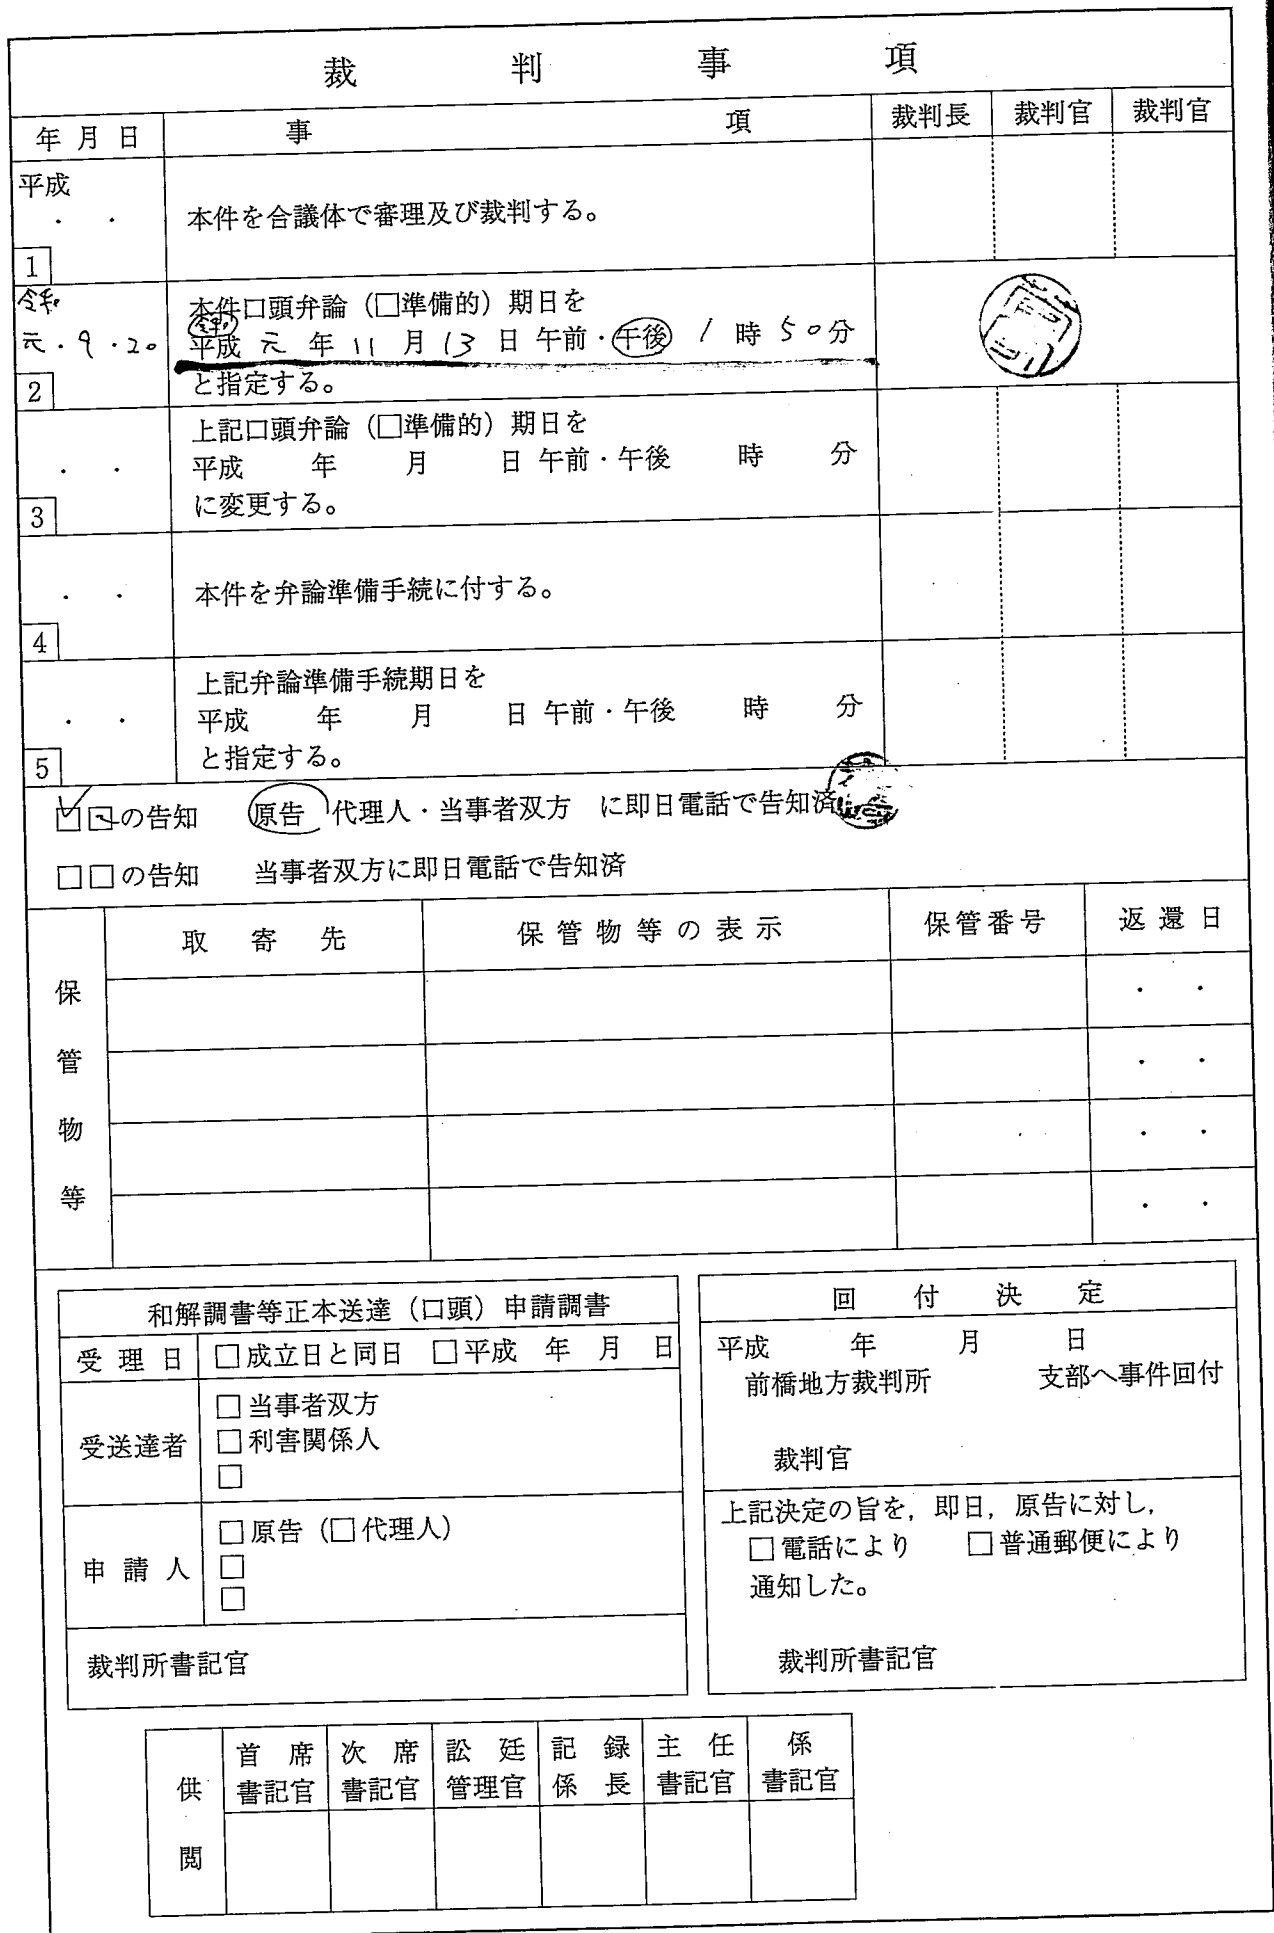 裁判事項
年月日 事項 裁判長 裁判官 裁判官
平成
・ ・ 本件を合議体で審理及び裁判する。
1
令和 本件口頭弁論（□準備的）期日を
令和
元.9.20 平成 元 年 11 月 13 日 午前・午後 1 時 50分
2 と指定する。
上記口頭弁論（□準備的）期日を
・ ・ 平成 年 月 日 午前・午後 時 分
3 に変更する。
・ ・ 本件を弁論準備手続に付する。
4
上記弁論準備手続期日を
・ ・ 平成 年 月 日 午前・午後 時 分
5 と指定する。
☑□の告知 原告 代理人・当事者双方 に即日電話で告知済
□□の告知 当事者双方に即日電話で告知済
保管物等
取寄先 保管物等の表示 保管番号 返還日
・ ・
・ ・
・ ・
・ ・
和解調書等正本送達（口頭）申請調書
受理日 □成立日と同日 □平成 年 月 日
受送達者
□当事者双方
□利害関係人
□
申請人
□原告（□代理人）
□
□
裁判所書記官
回付決定
平成 年 月 日
前橋地方裁判所 支部へ事件回付
裁判官
上記決定の旨を，即日，原告に対し，
□電話により □普通郵便により
通知した。
裁判所書記官
供閲
首席書記官 次席書記官 訟廷管理官 記録係長 主任書記官 係書記官